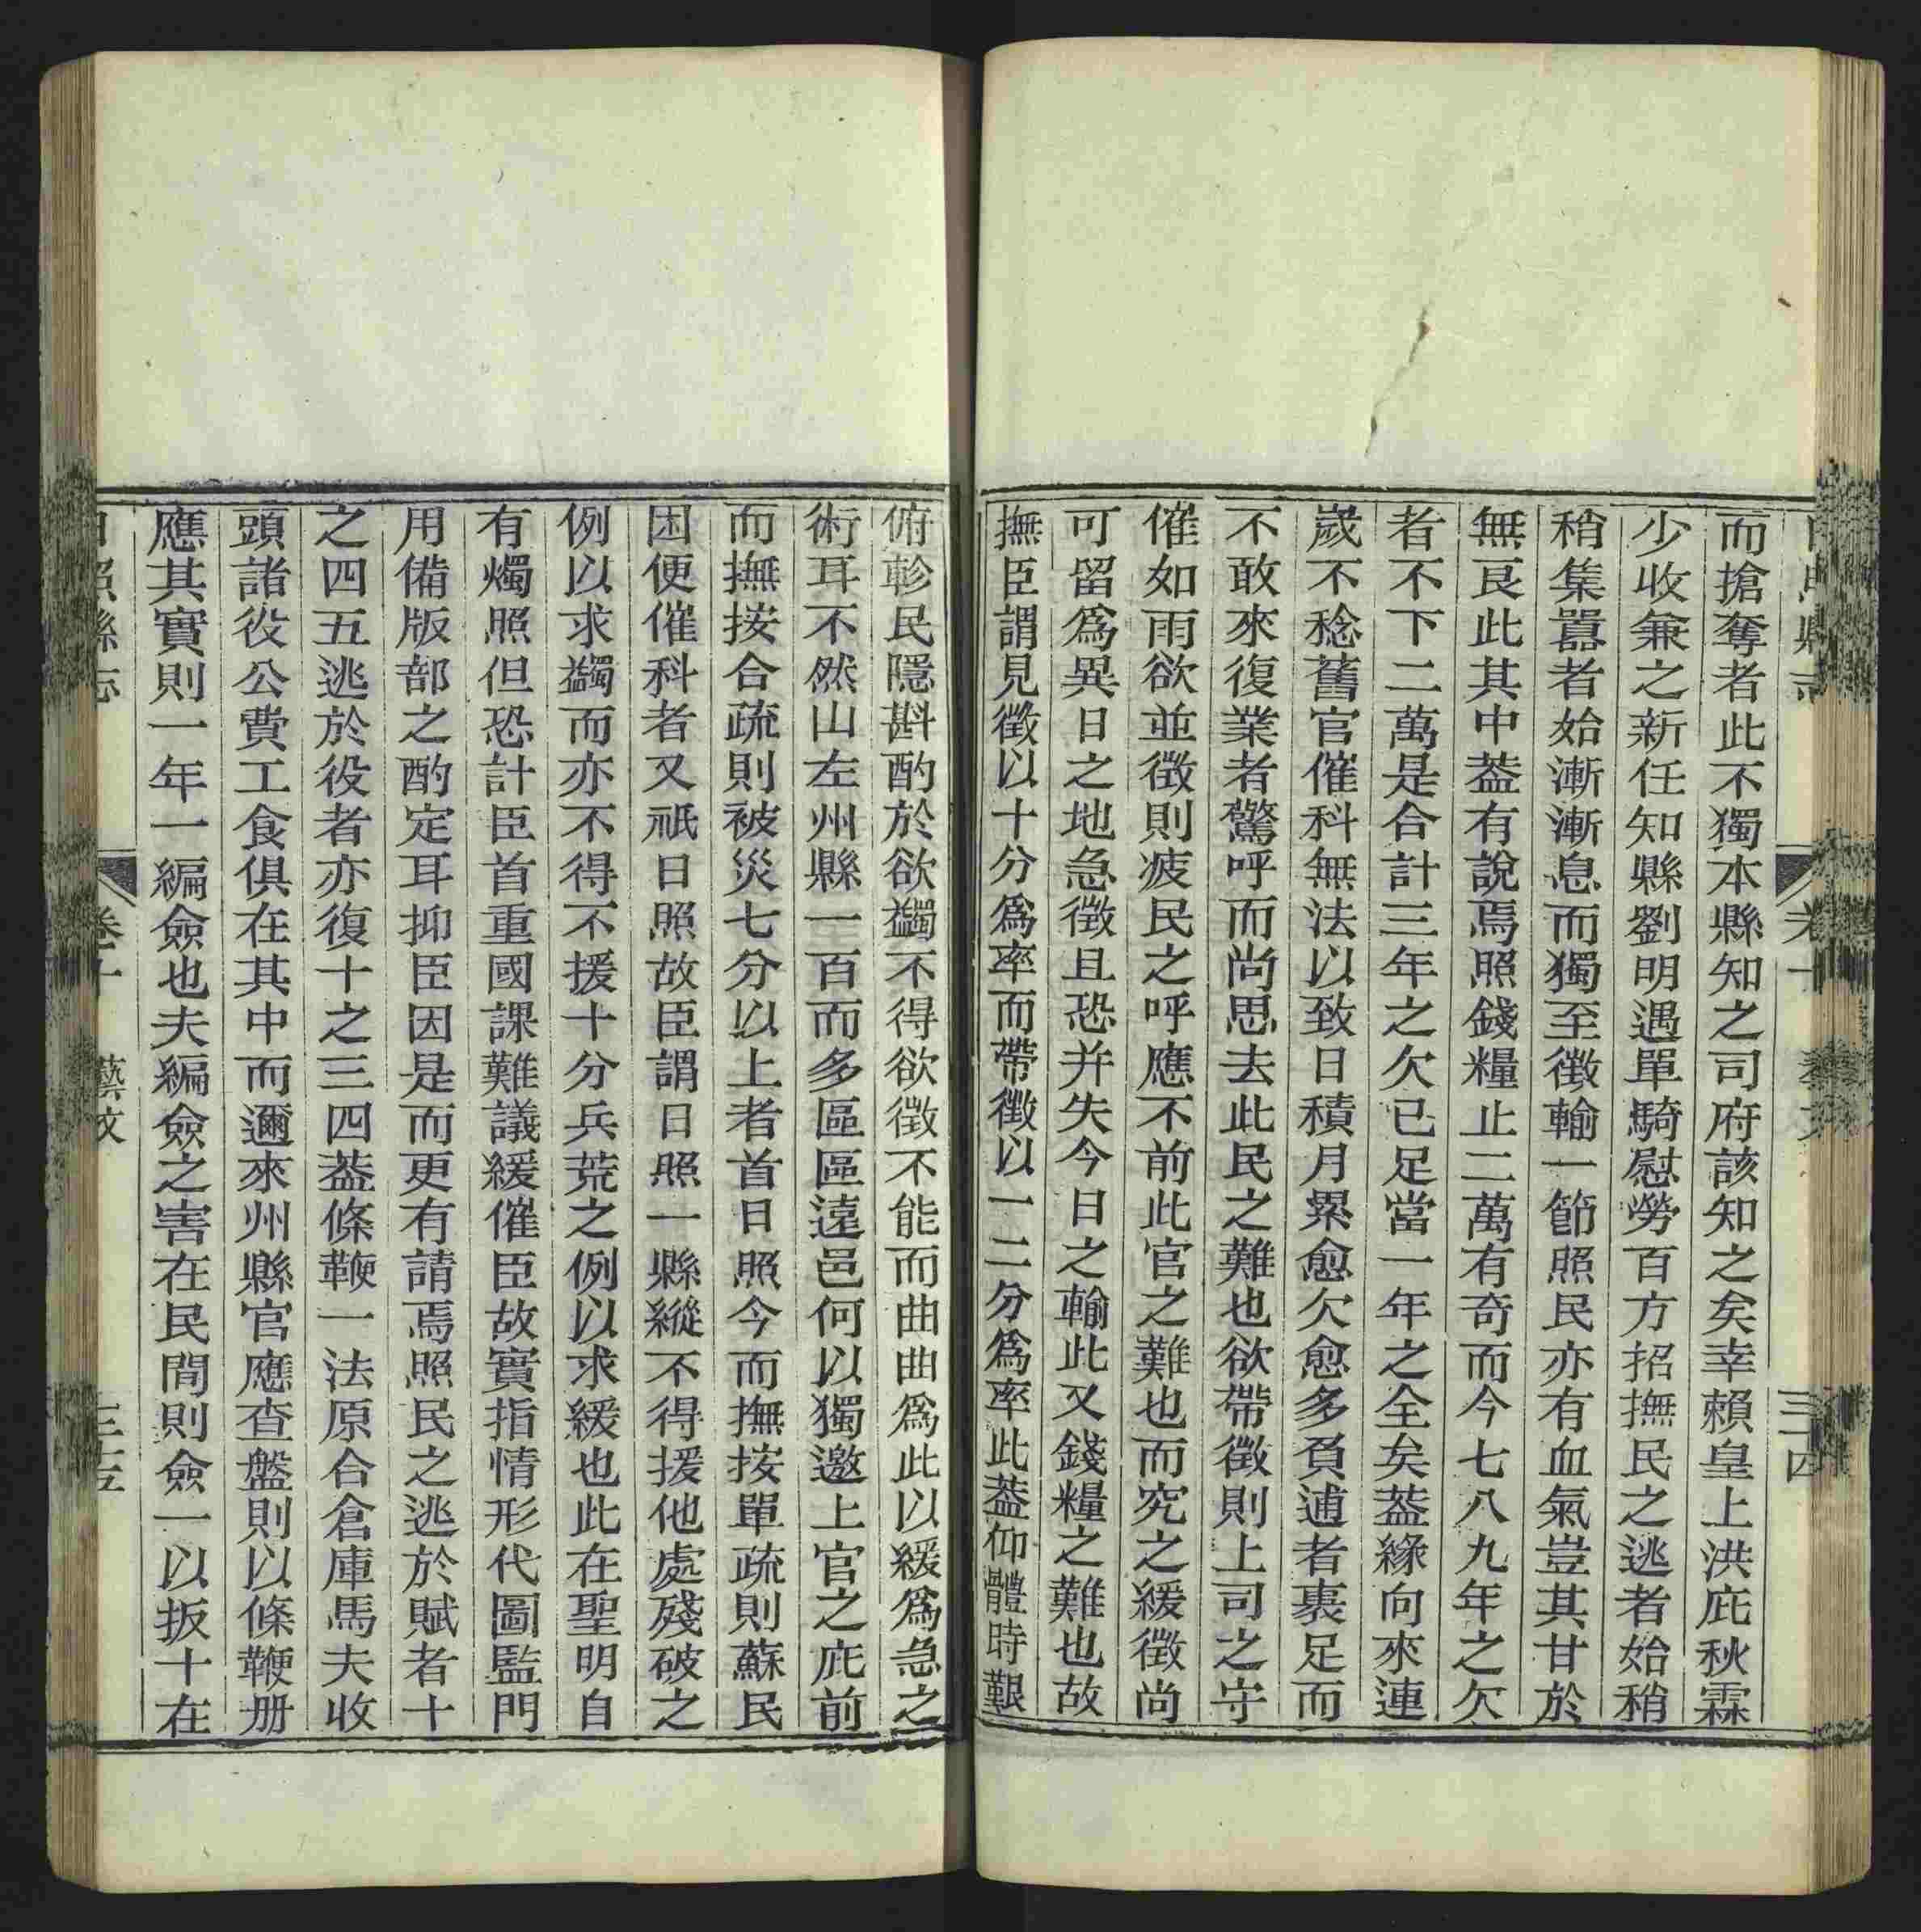 而搶奪者此不獨本縣知之司府該知之矣幸賴皇上洪庇秋霖
少收兼之新任知縣劉明遇單騎慰勞百方招撫民之逃者始稍
稍集囂者始漸漸息而獨至徵輸一節照民亦有血氣豈其甘於
無良此其中葢有說焉照錢糧止二萬有奇而今七八九年之欠
者不下二萬是合計三年之欠已足當一年之全矣葢緣向來連
嵗不稔舊官催科無法以致日積月累愈欠愈多負逋者裹足而
不敢來復業者驚呼而尚思去此民之難也欲帶徵則上司之守
催如雨欲並徵則疲民之呼應不前此官之難也而究之緩徵尚
可留爲異日之地急徵且恐并失今日之輸此又錢糧之難也故
撫臣謂見徵以十分爲率而帶徵以一二分爲率此葢仰體時艱
俯軫民隱斟酌於欲蠲不得欲徵不能而曲曲爲此以緩爲急之
術耳不然山左州縣一百而多區區遠邑何以獨邀上官之庇前
而撫按合疏則被災七分以上者首日照今而撫按單疏則蘇民
困便催科者又祇日照故臣謂日照一縣縱不得援他處殘破之
例以求蠲而亦不得不援十分兵荒之例以求緩也此在聖明自
有燭照但恐計臣首重國課難議緩催臣故實指情形代圖監門
用備版部之酌定耳抑臣因是而更有請焉照民之逃於賦者十
之四五逃於役者亦復十之三四葢條鞭一法原合倉庫馬夫收
頭諸役公費工食俱在其中而邇來州縣官應查盤則以條鞭册
應其實則一年一編僉也夫編僉之害在民間則僉一以扳十在
日照縣志
卷十
藝文
三五